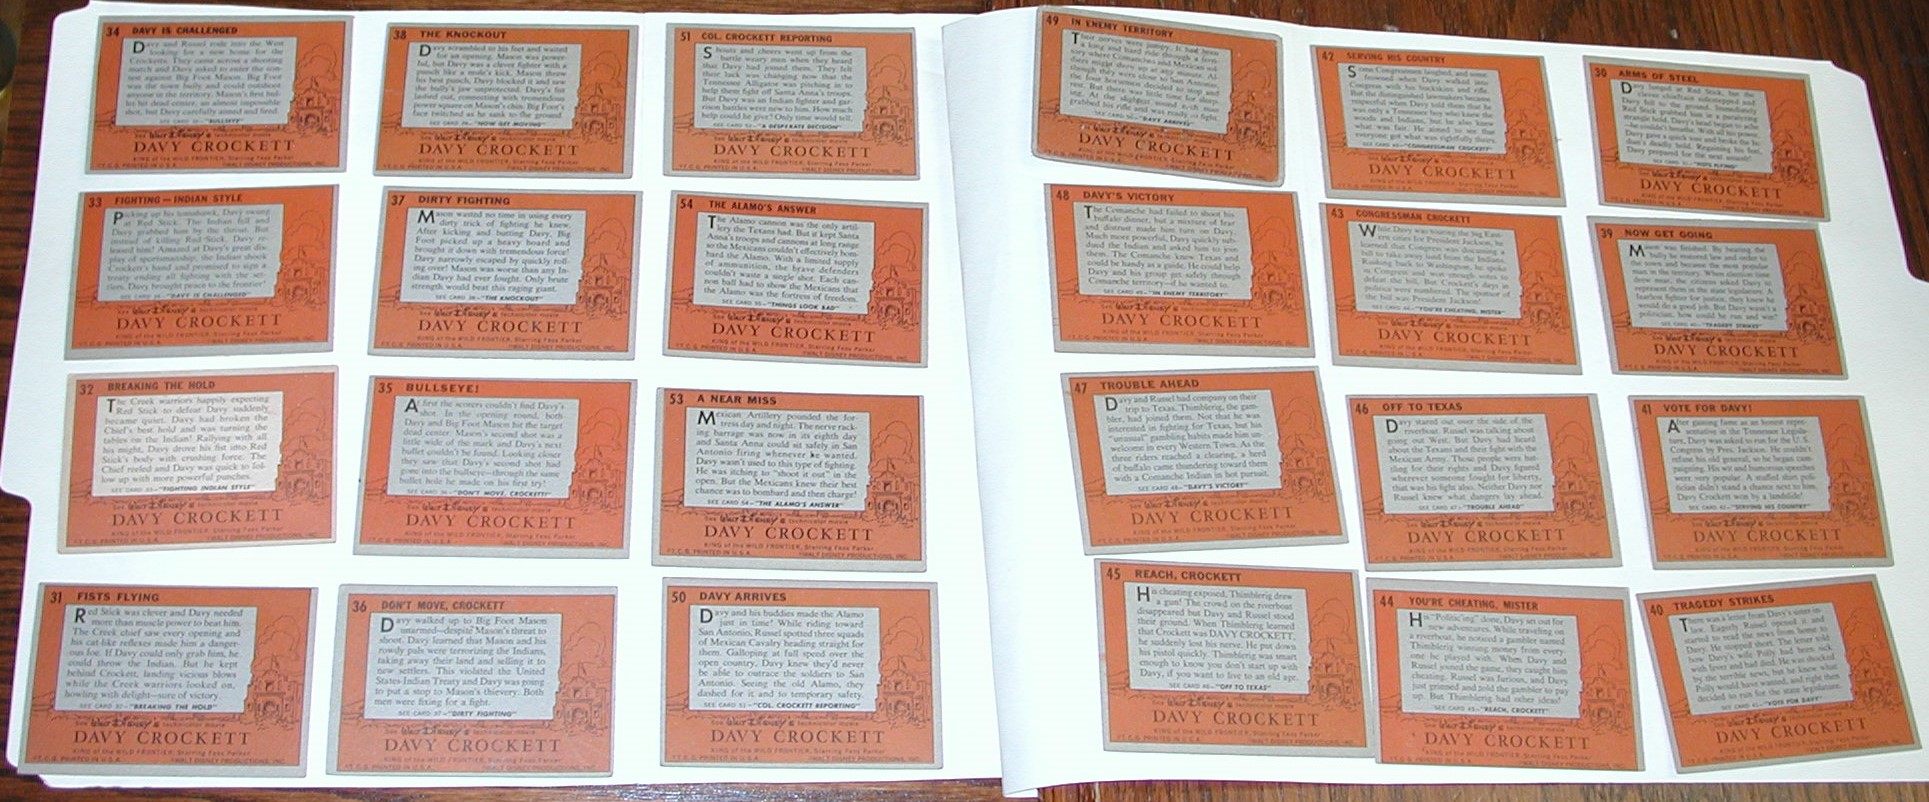 34 DAVY IS CHALLENGED
Davy and Russel rode into the West
looking for a new home for the
Crocketts. They came across a shooting
match and Davy asked to enter the con-
test against Big Foot Mason. Big Foot
was the town bully and could outshoot
anyone in the territory. Mason's first bul-
let hit dead center, an almost impossible
shot, but Davy carefully aimed and fired.
SEE CARD 35—"BULLSEYE"
See Walt Disney's technicolor movie
DAVY CROCKETT
KING of the WILD FRONTIER, Starring Fess Parker
T.C.G. PRINTED IN U.S.A. ©WALT DISNEY PRODUCTIONS, INC.
33 FIGHTING—INDIAN STYLE
Picking up his tomahawk, Davy swung
at Red Stick. The Indian fell and
Davy grabbed him by the throat. But
instead of killing Red Stick, Davy re-
leased him! Amazed at Davy's great dis-
play of sportsmanship, the Indian shook
Crockett's hand and promised to sign a
treaty ending all fighting with the set-
tlers. Davy brought peace to the frontier!
SEE CARD 34—"DAVY IS CHALLENGED"
See Walt Disney's technicolor movie
DAVY CROCKETT
KING of the WILD FRONTIER, Starring Fess Parker
T.C.G. PRINTED IN U.S.A. ©WALT DISNEY PRODUCTIONS, INC.
32 BREAKING THE HOLD
The Creek warriors happily expecting
Red Stick to defeat Davy suddenly
became quiet. Davy had broken the
Chief's best hold and was turning the
tables on the Indian! Rallying with all
his might, Davy drove his fist into Red
Stick's body with crushing force. The
Chief reeled and Davy was quick to fol-
low up with more powerful punches.
SEE CARD 33—"FIGHTING INDIAN STYLE"
See Walt Disney's technicolor movie
DAVY CROCKETT
KING of the WILD FRONTIER, Starring Fess Parker
T.C.G. PRINTED IN U.S.A. ©WALT DISNEY PRODUCTIONS, INC.
31 FISTS FLYING
Red Stick was clever and Davy needed
more than muscle power to beat him.
The Creek chief saw every opening and
his cat-like reflexes made him a danger-
ous foe. If Davy could only grab him, he
could throw the Indian. But he kept
behind Crockett, landing vicious blows
while the Creek warriors looked on,
howling with delight—sure of victory.
SEE CARD 32—"BREAKING THE HOLD"
See Walt Disney's technicolor movie
DAVY CROCKETT
KING of the WILD FRONTIER, Starring Fess Parker
T.C.G. PRINTED IN U.S.A. ©WALT DISNEY PRODUCTIONS, INC.
38 THE KNOCKOUT
Davy scrambled to his feet and waited
for an opening. Mason was power-
ful, but Davy was a clever fighter with a
punch like a mule's kick. Mason threw
his best punch, Davy blocked it and saw
the bully's jaw unprotected. Davy's fist
lashed out, connecting with tremendous
power square on Mason's chin. Big Foot's
face twitched as he sank to the ground.
SEE CARD 39—"NOW GET MOVING"
See Walt Disney's technicolor movie
DAVY CROCKETT
KING of the WILD FRONTIER, Starring Fess Parker
T.C.G. PRINTED IN U.S.A. ©WALT DISNEY PRODUCTIONS, INC.
37 DIRTY FIGHTING
Mason wasted no time in using every
dirty trick of fighting he knew.
After kicking and butting Davy, Big
Foot picked up a heavy board and
brought it down with tremendous force!
Davy narrowly escaped by quickly roll-
ing over! Mason was worse than any In-
dian Davy had ever fought. Only brute
strength would beat this raging giant.
SEE CARD 38—"THE KNOCKOUT"
See Walt Disney's technicolor movie
DAVY CROCKETT
KING of the WILD FRONTIER, Starring Fess Parker
T.C.G. PRINTED IN U.S.A. ©WALT DISNEY PRODUCTIONS, INC.
35 BULLSEYE!
At first the scorers couldn't find Davy's
shot. In the opening round, both
Davy and Big Foot Mason hit the target
dead center. Mason's second shot was a
little wide of the mark and Davy's next
bullet couldn't be found. Looking closer
they saw that Davy's second shot had
gone into the bullseye—through the same
bullet hole he made on his first try!
SEE CARD 36—"DON'T MOVE, CROCKETT!"
See Walt Disney's technicolor movie
DAVY CROCKETT
KING of the WILD FRONTIER, Starring Fess Parker
T.C.G. PRINTED IN U.S.A. ©WALT DISNEY PRODUCTIONS, INC.
36 DON'T MOVE, CROCKETT
Davy walked up to Big Foot Mason
unarmed—despite Mason's threat to
shoot. Davy learned that Mason and his
rowdy pals were terrorizing the Indians,
taking away their land and selling it to
new settlers. This violated the United
States-Indian Treaty and Davy was going
to put a stop to Mason's thievery. Both
men were fixing for a fight.
SEE CARD 37—"DIRTY FIGHTING"
See Walt Disney's technicolor movie
DAVY CROCKETT
KING of the WILD FRONTIER, Starring Fess Parker
T.C.G. PRINTED IN U.S.A. ©WALT DISNEY PRODUCTIONS, INC.
51 COL. CROCKETT REPORTING
Shouts and cheers went up from the
battle weary men when they heard
that Davy had joined them. They felt
their luck was changing now that the
Tennessee Alligator was pitching in to
help them fight off Santa Anna's troops.
But Davy was an Indian fighter and gar-
rison battles were new to him. How much
help could he give? Only time would tell.
SEE CARD 52—"A DESPERATE DECISION"
See Walt Disney's technicolor movie
DAVY CROCKETT
KING of the WILD FRONTIER, Starring Fess Parker
T.C.G. PRINTED IN U.S.A. ©WALT DISNEY PRODUCTIONS, INC.
54 THE ALAMO'S ANSWER
The Alamo cannon was the only artil-
lery the Texans had. But it kept Santa
Anna's troops and cannons at long range
so the Mexicans couldn't effectively bom-
bard the Alamo. With a limited supply
of ammunition, the brave defenders
couldn't waste a single shot. Each can-
non ball had to show the Mexicans that
the Alamo was the fortress of freedom.
SEE CARD 55—"THINGS LOOK BAD"
See Walt Disney's technicolor movie
DAVY CROCKETT
KING of the WILD FRONTIER, Starring Fess Parker
T.C.G. PRINTED IN U.S.A. ©WALT DISNEY PRODUCTIONS, INC.
53 A NEAR MISS
Mexican Artillery pounded the for-
tress day and night. The nerve rack-
ing barrage was now in its eighth day
and Santa Anna could sit safely in San
Antonio firing whenever he wanted.
Davy wasn't used to this type of fighting.
He was itching to "shoot it out" in the
open. But the Mexicans knew their best
chance was to bombard and then charge!
SEE CARD 54—"THE ALAMO'S ANSWER"
See Walt Disney's technicolor movie
DAVY CROCKETT
KING of the WILD FRONTIER, Starring Fess Parker
T.C.G. PRINTED IN U.S.A. ©WALT DISNEY PRODUCTIONS, INC.
50 DAVY ARRIVES
Davy and his buddies made the Alamo
just in time! While riding toward
San Antonio, Russel spotted three squads
of Mexican Cavalry heading straight for
them. Galloping at full speed over the
open country, Davy knew they'd never
be able to outrace the soldiers to San
Antonio. Seeing the old Alamo, they
dashed for it and to temporary safety.
SEE CARD 51—"COL. CROCKETT REPORTING"
See Walt Disney's technicolor movie
DAVY CROCKETT
KING of the WILD FRONTIER, Starring Fess Parker
T.C.G. PRINTED IN U.S.A. ©WALT DISNEY PRODUCTIONS, INC.
49 IN ENEMY TERRITORY
Their nerves were jumpy. It had been
a long and hard ride through a terri-
tory where Comanches and Mexican sol-
diers might show up at any minute. Al-
though they were close to San Antonio,
the four decided to stop and
rest. But there was little time for sleep-
ing. At the slightest sound each man
grabbed his rifle and was ready to fight.
SEE CARD 50—"DAVY ARRIVES"
See Walt Disney's technicolor movie
DAVY CROCKETT
KING of the WILD FRONTIER, Starring Fess Parker
T.C.G. PRINTED IN U.S.A. ©WALT DISNEY PRODUCTIONS, INC.
48 DAVY'S VICTORY
The Comanche had failed to shoot his
buffalo dinner, but a mixture of fear
and distrust made him turn on Davy.
Much more powerful, Davy quickly sub-
dued the Indian and asked him to join
them. The Comanche knew Texas and
could be handy as a guide. He could help
Davy and his group get safely through
Comanche territory—if he wanted to.
SEE CARD 49—"IN ENEMY TERRITORY"
See Walt Disney's technicolor movie
DAVY CROCKETT
KING of the WILD FRONTIER, Starring Fess Parker
T.C.G. PRINTED IN U.S.A. ©WALT DISNEY PRODUCTIONS, INC.
47 TROUBLE AHEAD
Davy and Russel had company on their
trip to Texas. Thimblerig, the gam-
bler, had joined them. Not that he was
interested in fighting for Texas, but his
"unusual" gambling habits made him un-
welcome in every Western Town. As the
three riders reached a clearing, a herd
of buffalo came thundering toward them
with a Comanche Indian in hot pursuit.
SEE CARD 48—"DAVY'S VICTORY"
See Walt Disney's technicolor movie
DAVY CROCKETT
KING of the WILD FRONTIER, Starring Fess Parker
T.C.G. PRINTED IN U.S.A. ©WALT DISNEY PRODUCTIONS, INC.
45 REACH, CROCKETT
His cheating exposed, Thimblerig drew
a gun! The crowd on the riverboat
disappeared but Davy and Russel stood
their ground. When Thimblerig learned
that Crockett was DAVY CROCKETT,
he suddenly lost his nerve. He put down
his pistol quickly. Thimblerig was smart
enough to know you don't start up with
Davy, if you want to live to an old age.
SEE CARD 46—"OFF TO TEXAS"
See Walt Disney's technicolor movie
DAVY CROCKETT
KING of the WILD FRONTIER, Starring Fess Parker
T.C.G. PRINTED IN U.S.A. ©WALT DISNEY PRODUCTIONS, INC.
42 SERVING HIS COUNTRY
Some Congressmen laughed, and some
frowned when Davy walked into
Congress with his buckskins and rifle.
But the distinguished lawmakers became
respectful when Davy told them that he
was only a Tennessee boy who knew the
woods and Indians, but he also knew
what was fair. He aimed to see that
everyone got what was rightfully theirs.
SEE CARD 43—"CONGRESSMAN CROCKETT"
See Walt Disney's technicolor movie
DAVY CROCKETT
KING of the WILD FRONTIER, Starring Fess Parker
T.C.G. PRINTED IN U.S.A. ©WALT DISNEY PRODUCTIONS, INC.
43 CONGRESSMAN CROCKETT
While Davy was touring the big East-
ern cities for President Jackson, he
learned that Congress was discussing a
bill to take away land from the Indians.
Rushing back to Washington, he spoke
in Congress and won enough votes to
defeat the bill. But Crockett's days in
politics were numbered. The sponsor of
the bill was President Jackson!
SEE CARD 44—"YOU'RE CHEATING, MISTER"
See Walt Disney's technicolor movie
DAVY CROCKETT
KING of the WILD FRONTIER, Starring Fess Parker
T.C.G. PRINTED IN U.S.A. ©WALT DISNEY PRODUCTIONS, INC.
46 OFF TO TEXAS
Davy stared out over the side of the
riverboat. Russel was talking about
going out West. But Davy had heard
about the Texans and their fight with the
Mexican Army. Those people were bat-
tling for their rights and Davy figured
wherever someone fought for liberty,
that was his fight also. Neither Davy nor
Russel knew what dangers lay ahead.
SEE CARD 47—"TROUBLE AHEAD"
See Walt Disney's technicolor movie
DAVY CROCKETT
KING of the WILD FRONTIER, Starring Fess Parker
T.C.G. PRINTED IN U.S.A. ©WALT DISNEY PRODUCTIONS, INC.
44 YOU'RE CHEATING, MISTER
His "Politic'ing" done, Davy set out for
new adventures. While traveling on
a riverboat, he noticed a gambler named
Thimblerig winning money from every-
one he played with. When Davy and
Russel joined the game, they caught him
cheating. Russel was furious, and Davy
just grinned and told the gambler to pay
up. But Thimblerig had other ideas!
SEE CARD 45—"REACH, CROCKETT"
See Walt Disney's technicolor movie
DAVY CROCKETT
KING of the WILD FRONTIER, Starring Fess Parker
T.C.G. PRINTED IN U.S.A. ©WALT DISNEY PRODUCTIONS, INC.
30 ARMS OF STEEL
Davy lunged at Red Stick, but the
clever chieftain sidestepped and
Davy fell to the ground. Immediately
Red Stick grabbed him in a paralyzing
strangle hold. Davy's head began to ache
—he couldn't breathe. With all his power
Davy gave a quick turn and broke the In-
dian's deadly hold. Regaining his feet,
Davy prepared for the next assault!
SEE CARD 31—"FISTS FLYING"
See Walt Disney's technicolor movie
DAVY CROCKETT
KING of the WILD FRONTIER, Starring Fess Parker
T.C.G. PRINTED IN U.S.A. ©WALT DISNEY PRODUCTIONS, INC.
39 NOW GET GOING
Mason was finished. By beating the
bully he restored law and order to
the town and became the most popular
man in the territory. When election time
drew near, the citizens asked Davy to
represent them in the state legislature. A
fearless fighter for justice, they knew he
would do a good job. But Davy wasn't a
politician, how could he run and win?
SEE CARD 40—"TRAGEDY STRIKES"
See Walt Disney's technicolor movie
DAVY CROCKETT
KING of the WILD FRONTIER, Starring Fess Parker
T.C.G. PRINTED IN U.S.A. ©WALT DISNEY PRODUCTIONS, INC.
41 VOTE FOR DAVY!
After gaining fame as an honest repre-
sentative in the Tennessee Legisla-
ture, Davy was asked to run for the U. S.
Congress by Pres. Jackson. He couldn't
refuse his old general, so he began cam-
paigning. His wit and humorous speeches
were very popular. A stuffed shirt poli-
tician didn't stand a chance next to him.
Davy Crockett won by a landslide!
SEE CARD 42—"SERVING HIS COUNTRY"
See Walt Disney's technicolor movie
DAVY CROCKETT
KING of the WILD FRONTIER, Starring Fess Parker
T.C.G. PRINTED IN U.S.A. ©WALT DISNEY PRODUCTIONS, INC.
40 TRAGEDY STRIKES
There was a letter from Davy's sister-in-
law. Eagerly Russel opened it and
started to read the news from home to
Davy. He stopped short. The letter told
how Davy's wife Polly had been sick
with fever and had died. He was shocked
by the terrible news, but he knew what
Polly would have wanted, and right then
decided to run for the state legislature.
SEE CARD 41—"VOTE FOR DAVY"
See Walt Disney's technicolor movie
DAVY CROCKETT
KING of the WILD FRONTIER, Starring Fess Parker
T.C.G. PRINTED IN U.S.A. ©WALT DISNEY PRODUCTIONS, INC.